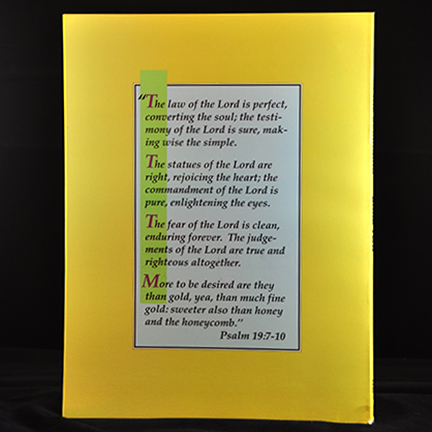 "The law of the Lord is perfect,
converting the soul; the testi-
mony of the Lord is sure, mak-
ing wise the simple.
The statues of the Lord are
right, rejoicing the heart; the
commandment of the Lord is
pure, enlightening the eyes.
The fear of the Lord is clean,
enduring forever. The judge-
ments of the Lord are true and
righteous altogether.
More to be desired are they
than gold, yea, than much fine
gold: sweeter also than honey
and the honeycomb."
Psalm 19:7-10